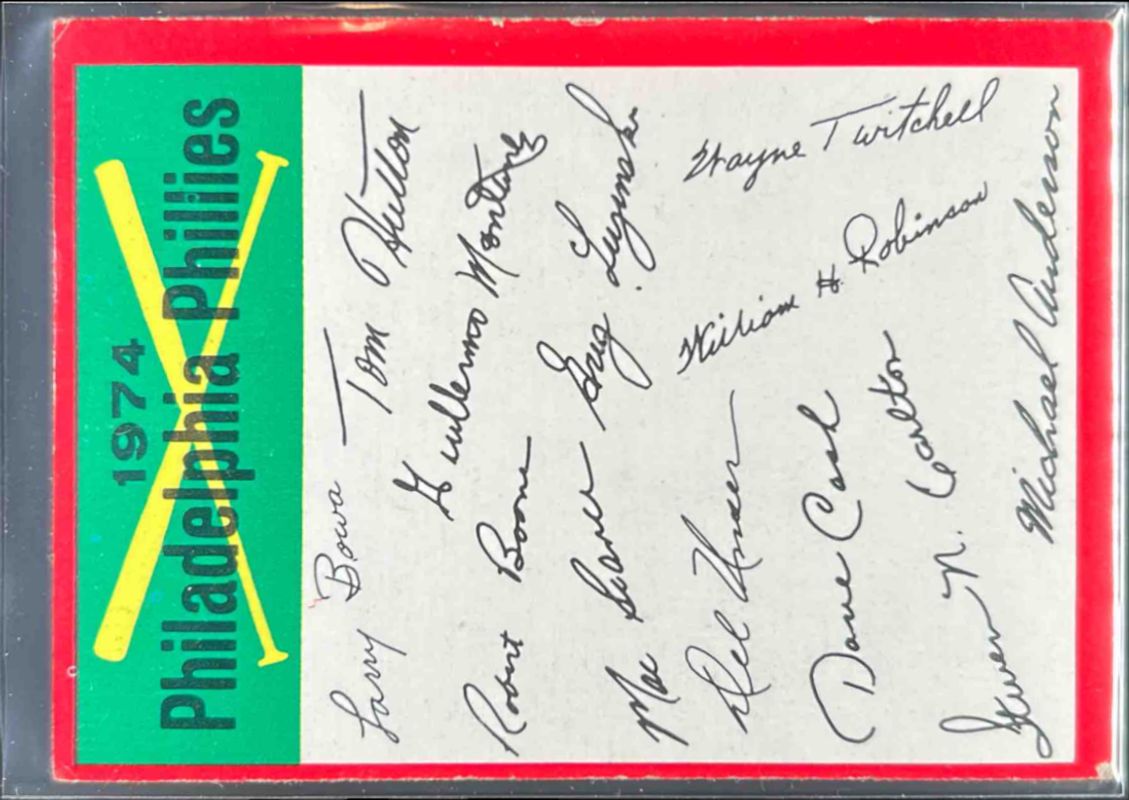 1974
Philadelphia Phillies
Larry Bowa
Tom Hutton
Guillermo Montanez
Robert Boone
Greg Luzinski
Mac Scarce
Wayne Twitchell
Del Unser
William H. Robinson
Dave Cash
Steven N. Carlton
Michael Anderson